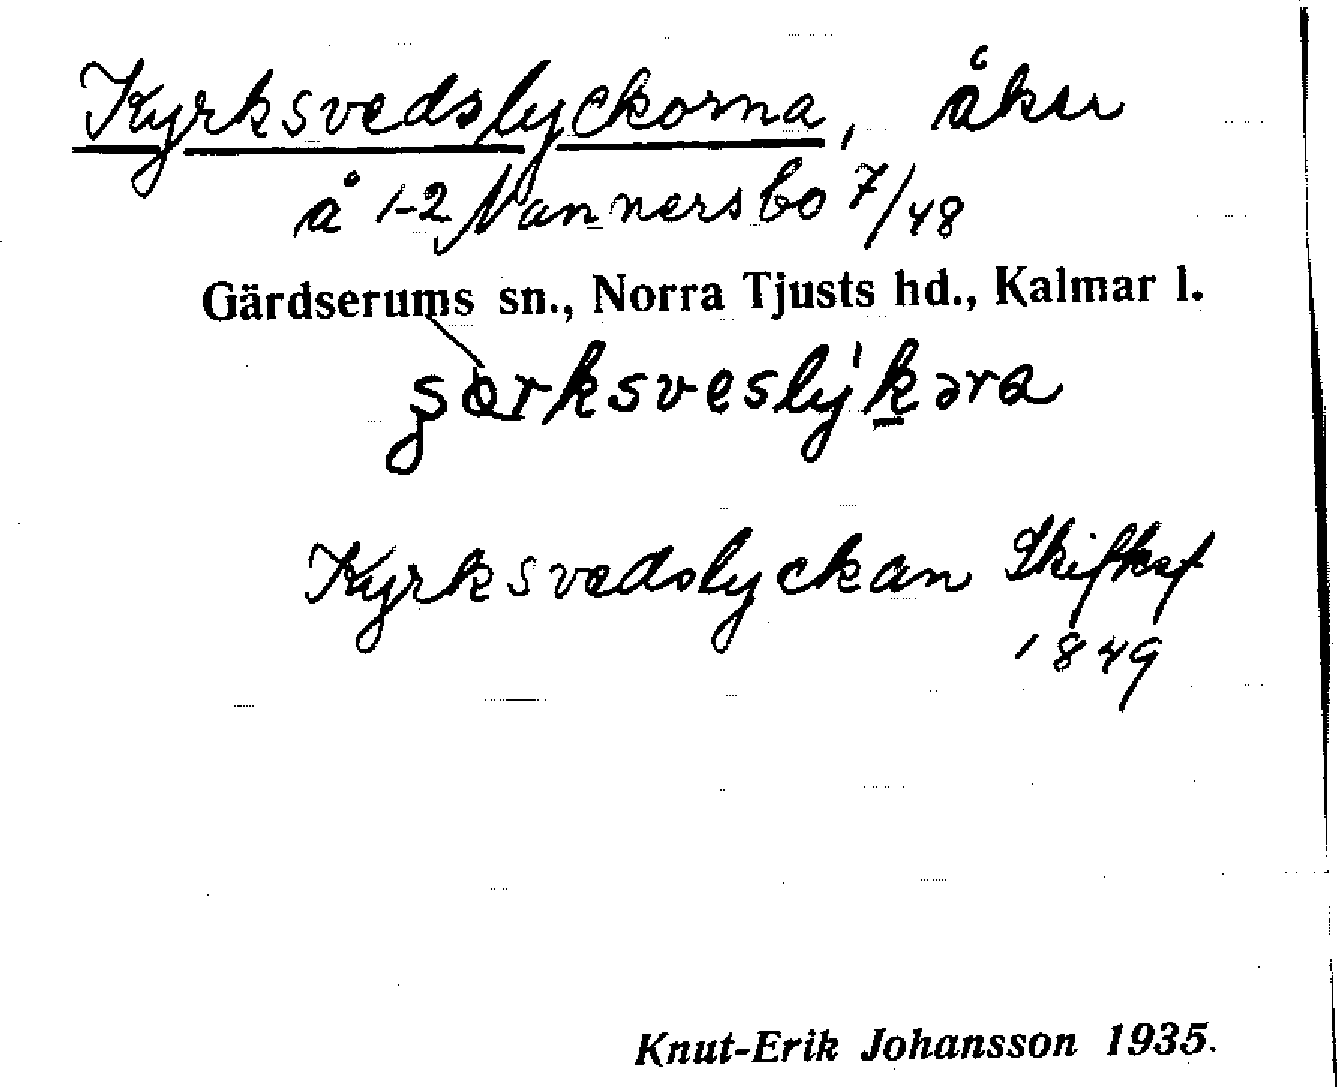 Kyrksvedslyckorna, åker
å 1-2 Nannersbo 7/48
Gärdserums sn., Norra Tjusts hd., Kalmar l.
Kyrksvedslyckan Skifksf
1849
Knut-Erik Johansson 1935.